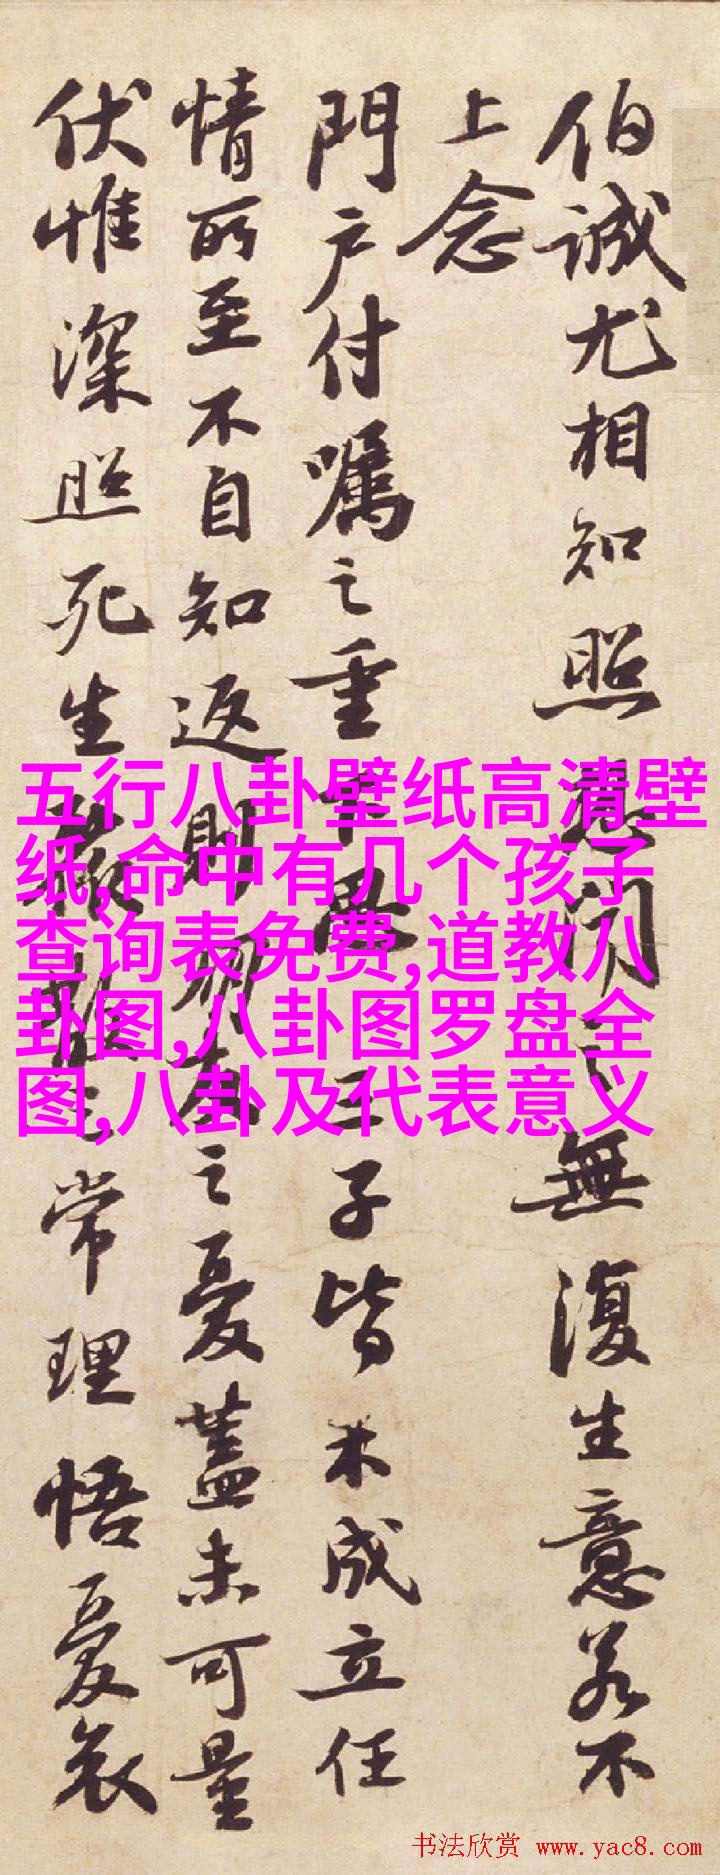 伯諴尤相知照
無復生意若不
上念
門户付囑之重
三子皆未成立任
情所至不自知返則
之憂蓋未可量
伏惟深照死生
常理悟憂哀
五行八卦壁纸高清壁
纸,命中有几个孩子
查询表免费,道教八
卦图,八卦图罗盘全
图,八卦及代表意义
书法欣赏 www.yac8.com